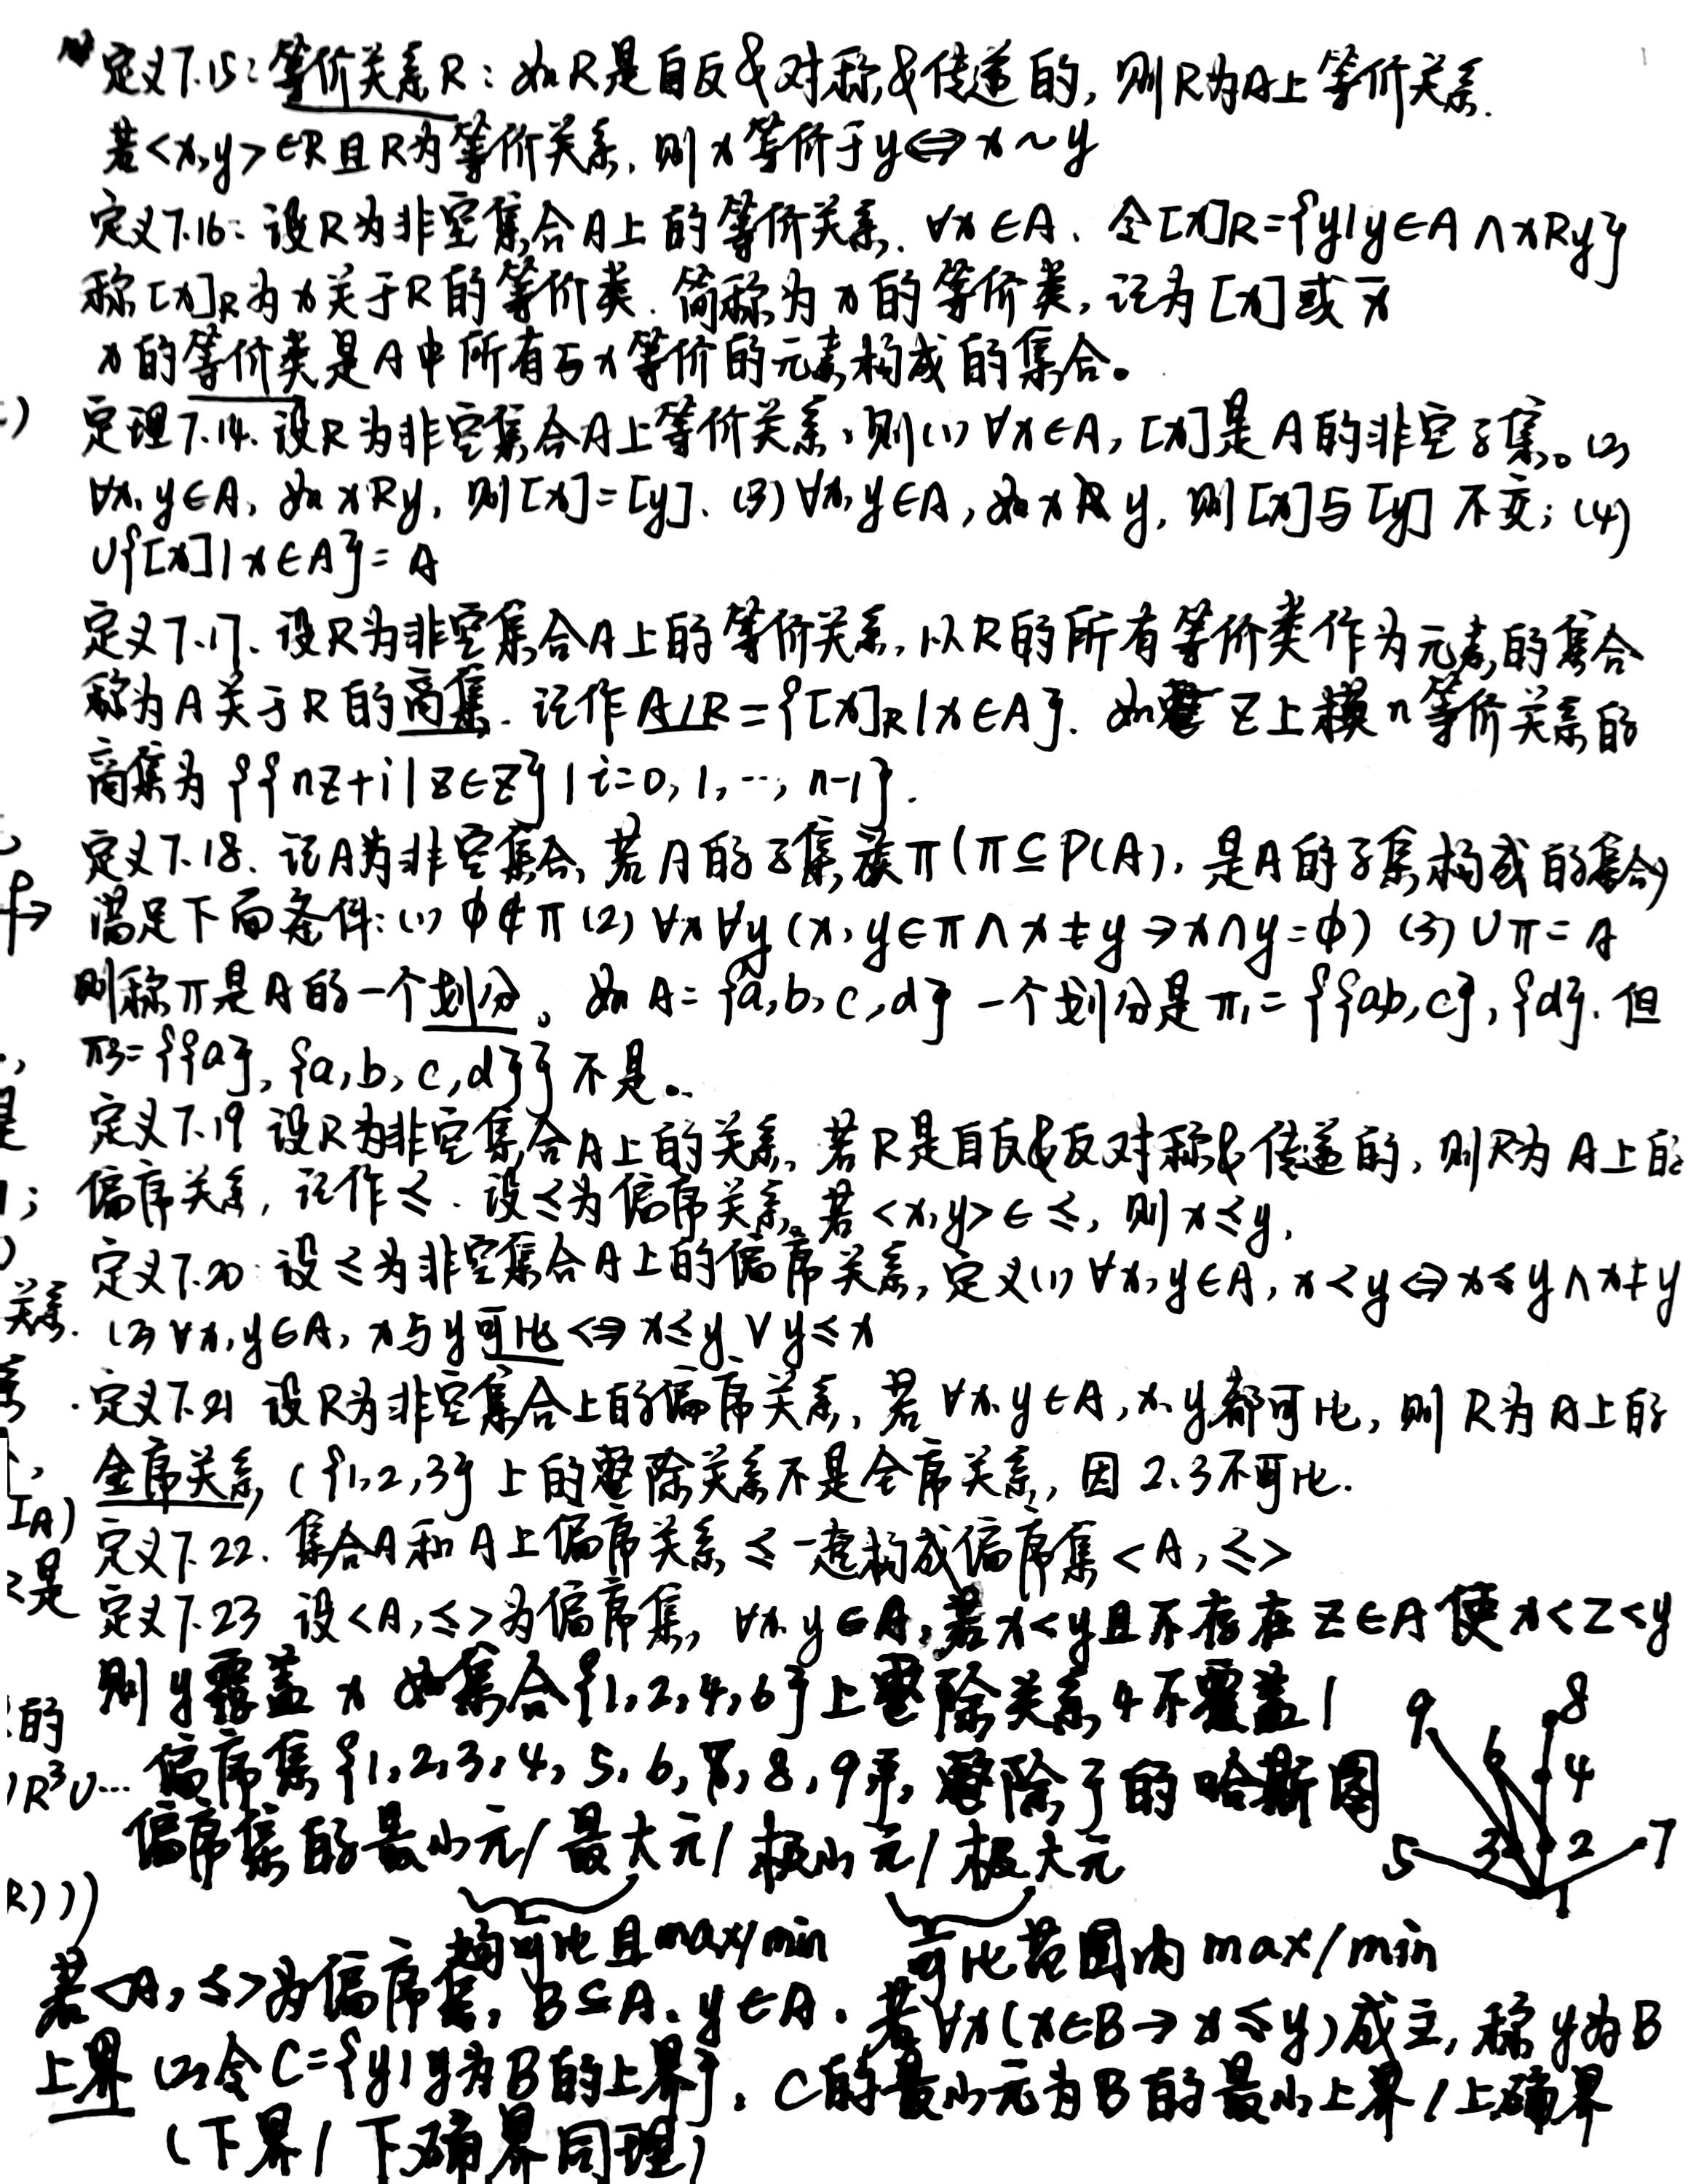 定义7.15：等价关系R：如R是自反&对称&传递的，则R为A上等价关系.
若<x,y>∈R且R为等价关系，则x等价于y⇔x~y
定义7.16：设R为非空集合A上的等价关系. ∀x∈A、令[x]R={y|y∈A∧xRy}
称[x]R为x关于R的等价类. 简称为x的等价类，记为[x]或x̅
x的等价类是A中所有与x等价的元素构成的集合。
定理7.14. 设R为非空集合A上等价关系，则(1)∀x∈A，[x]是A的非空子集。(2)
∀x,y∈A，如xRy，则[x]=[y]. (3)∀x,y∈A，如xR̸y，则[x]与[y]不交；(4)
∪{[x]|x∈A}=A
定义7.17. 设R为非空集合A上的等价关系，以R的所有等价类作为元素的集合
称为A关于R的商集. 记作A/R={[x]R|x∈A}. 如 Z上模n等价关系的
商集为{{nz+i|z∈Z}|i=0,1,…,n-1}.
定义7.18. 记A为非空集合，若A的子集族π(π⊆P(A)，是A的子集构成的集合)
满足下面条件：(1)ϕ∉π (2)∀x∀y(x,y∈π∧x≠y→x∩y=ϕ) (3)∪π=A
则称π是A的一个划分。如A={a,b,c,d}一个划分是π1={{a,b,c},{d}. 但
π3={{a},{a,b,c,d}}不是.
定义7.19 设R为非空集合A上的关系，若R是自反&反对称&传递的，则R为A上的
偏序关系，记作≤. 设≤为偏序关系。若<x,y>∈≤，则x≤y，
定义7.20：设≤为非空集合A上的偏序关系，定义(1)∀x,y∈A，x<y⇔x≤y∧x≠y
(2)∀x,y∈A，x与y可比⇔x≤y∨y≤x
定义7.21 设R为非空集合上的偏序关系，若∀x,y∈A，x,y都可比，则R为A上的
全序关系，({1,2,3}上的整除关系不是全序关系，因2、3不可比.
定义7.22. 集合A和A上偏序关系≤一起构成偏序集<A,≤>
定义7.23 设<A,≤>为偏序集，∀x,y∈A，若x<y且不存在z∈A使x<z<y
则y覆盖x 如集合{1,2,4,6}上整除关系4不覆盖1
偏序集{1,2,3,4,5,6,7,8,9},整除}的哈斯图
9 6 8 4 5 3 2 7 1
偏序集的最小元/最大元/极小元/极大元
均可比且max/min 可比范围内max/min
若<A,≤>为偏序集，B⊆A、y∈A. 若∀x(x∈B→x≤y)成立，称y为B
上界 (2)令C={y|y为B的上界}，C的最小元为B的最小上界/上确界
(下界/下确界同理)